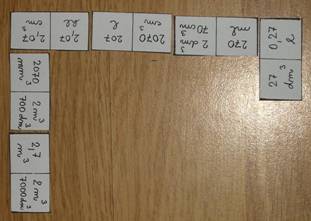 27
dm³
0,27
l
270
ml
2 dm³
70 cm³
2070
cm³
207
l
2,07
hl
2,07
cm³
2070
mm³
2 m³
700 dm³
2,7
m³
2 m³
7000 dm³